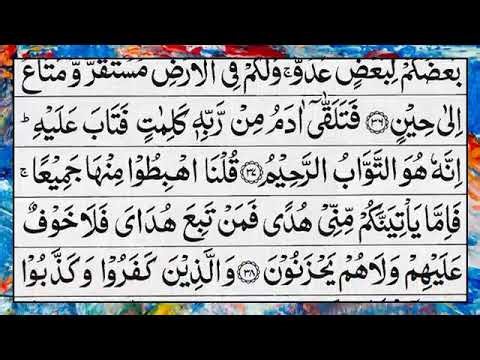 بَعْضُكُمْ لِبَعْضٍ عَدُوٌّ ۚ وَلَكُمْ فِي الْاَرْضِ مُسْتَقَرٌّ وَّمَتَاعٌ
اِلٰى حِيْنٍ ﴿۳۶﴾ فَتَلَقّٰۤى اٰدَمُ مِنْ رَّبِّهٖ كَلِمٰتٍ فَتَابَ عَلَيْهِ ؕ
اِنَّهٗ هُوَ التَّوَّابُ الرَّحِيْمُ ﴿۳۷﴾ قُلْنَا اهْبِطُوْا مِنْهَا جَمِيْعًا ۚ
فَاِمَّا يَاْتِيَنَّكُمْ مِّنِّيْ هُدًى فَمَنْ تَبِعَ هُدَايَ فَلَا خَوْفٌ
عَلَيْهِمْ وَلَا هُمْ يَحْزَنُوْنَ ﴿۳۸﴾ وَالَّذِيْنَ كَفَرُوْا وَكَذَّبُوْا